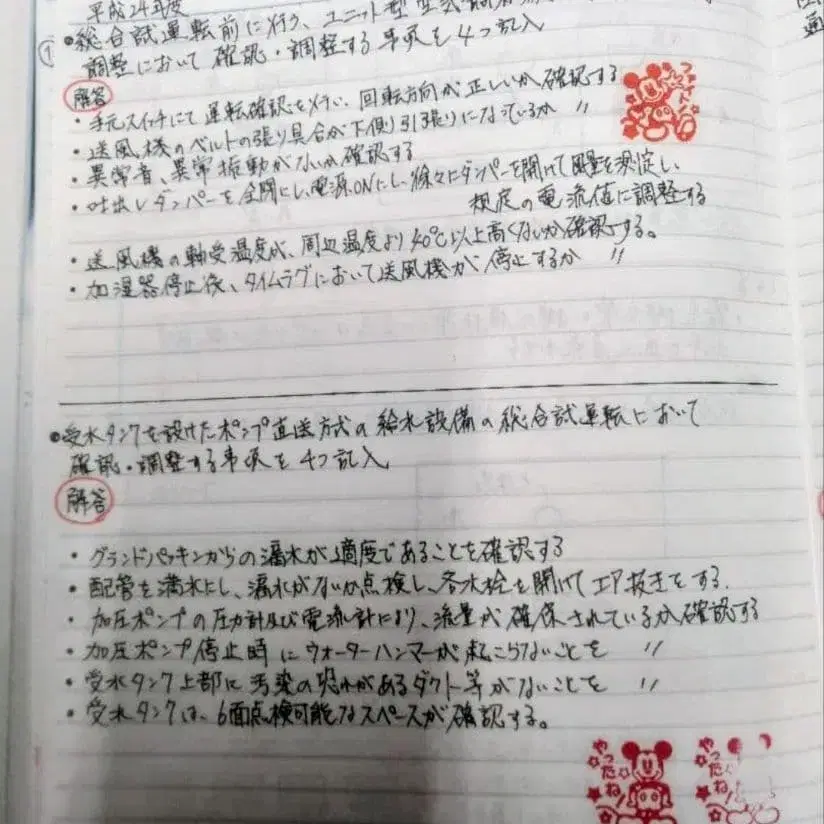 平成24年度
① ・総合試運転前に行う、ユニット型空気調
調整において確認・調整する事項を4つ記入
解答
・手元スイッチにて運転確認を行い、回転方向が正しいか確認する
・送風機のベルトの張り具合が下側引張りになっているか 〃
・異常音、異常振動がないか確認する
・吐出しダンパーを全閉にし、電源ONにし、徐々にダンパーを開けて風量を測定し、
規定の電流値に調整する
・送風機の軸受温度が、周辺温度より40℃以上高くないか確認する。
・加湿器停止後、タイムラグにおいて送風機が停止するか 〃
ファイト
・受水タンクを設けたポンプ直送方式の給水設備の総合試運転において
確認・調整する事項を4つ記入
解答
・グランドパッキンからの漏水が適度であることを確認する
・配管を満水にし、漏水がないか点検し、各水栓を開けてエア抜きをする.
・加圧ポンプの圧力計及び電流計により、流量が確保されているか確認する
・加圧ポンプ停止時にウォーターハンマーが起こらないことを 〃
・受水タンク上部に汚染の恐れがあるダクト等がないことを 〃
・受水タンクは、6面点検可能なスペースが確認する。
やったね!
やった
ね!